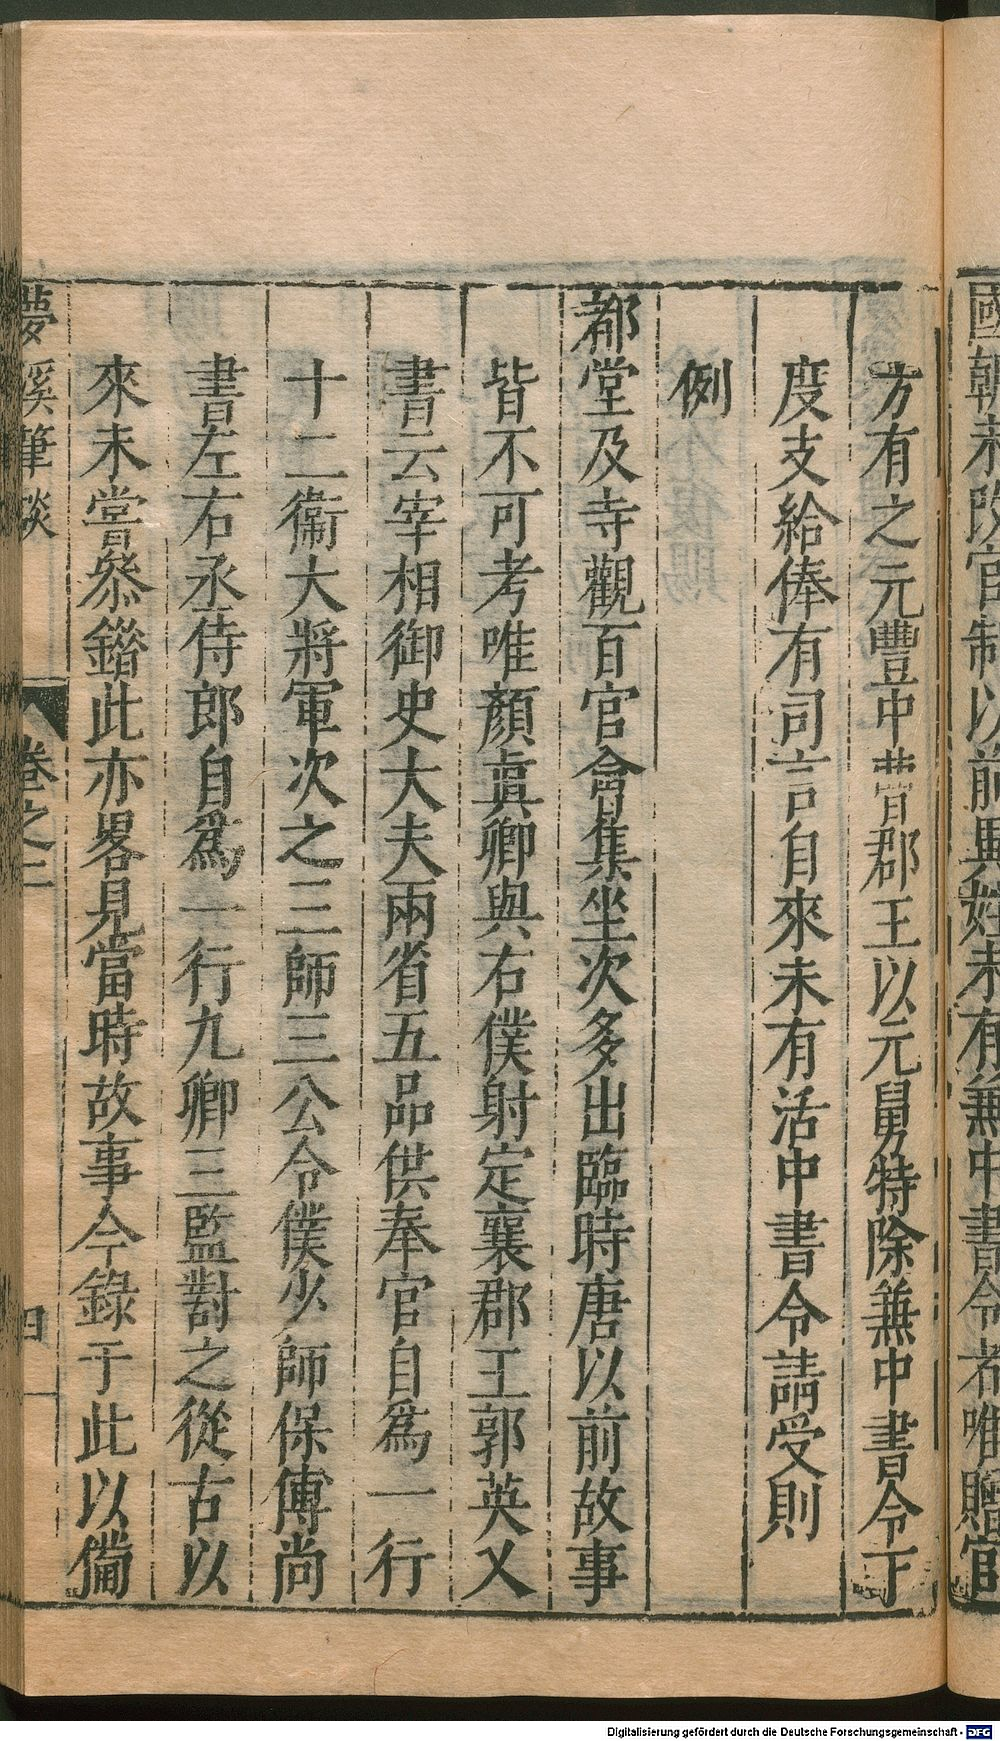 國朝未改官制以前異姓未有兼中書令者唯贈官
方有之元豐中曹郡王以元舅特除兼中書令下
度支給俸有司言自來未有活中書令請受則
例
都堂及寺觀百官會集坐次多出臨時唐以前故事
皆不可考唯顏眞卿與右僕射定襄郡王郭英乂
書云宰相御史大夫兩省五品供奉官自爲一行
十二衞大將軍次之三師三公令僕少師保傅尚
書左右丞侍郎自爲一行九卿三監對之從古以
來未嘗叅錯此亦畧見當時故事今錄于此以備
夢溪筆談 卷之二 四
Digitalisierung gefördert durch die Deutsche Forschungsgemeinschaft - DFG